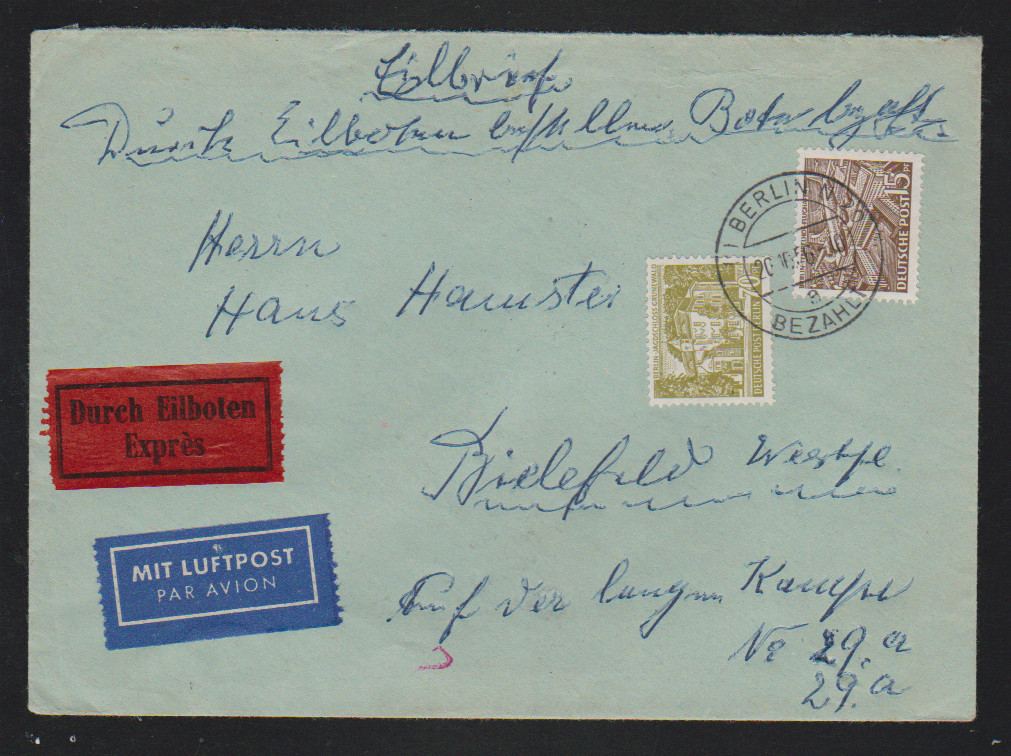 Eilbrief
Durch Eilboten bestellen Bote bezahlt
Herrn
Hans Hamster
Bielefeld Westf.
Auf der langen Kampe
No 29.a
29.a
Durch Eilboten
Exprès
MIT LUFTPOST
PAR AVION
15 PF
DEUTSCHE POST
BERLIN
20.10.56
BEZAHLT
70
BERLIN-JAGDSCHLOSS GRUNEWALD
DEUTSCHE POST BERLIN